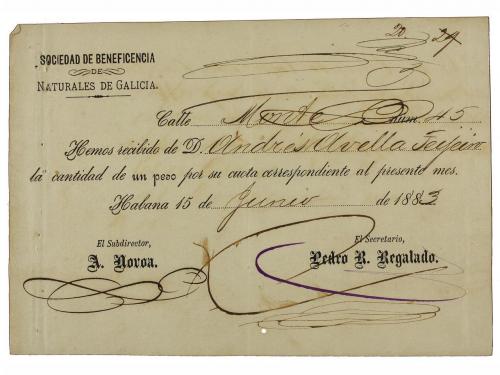 20. 27
SOCIEDAD DE BENEFICENCIA
DE
NATURALES DE GALICIA.
Calle Monte Núm. 45
Hemos recibido de D. Andrés Avella Feijein
la cantidad de un peso por su cuota correspondiente al presente mes.
Habana 15 de Junio de 1883
El Subdirector, El Secretario,
A. Novoa. Pedro R. Regalado.